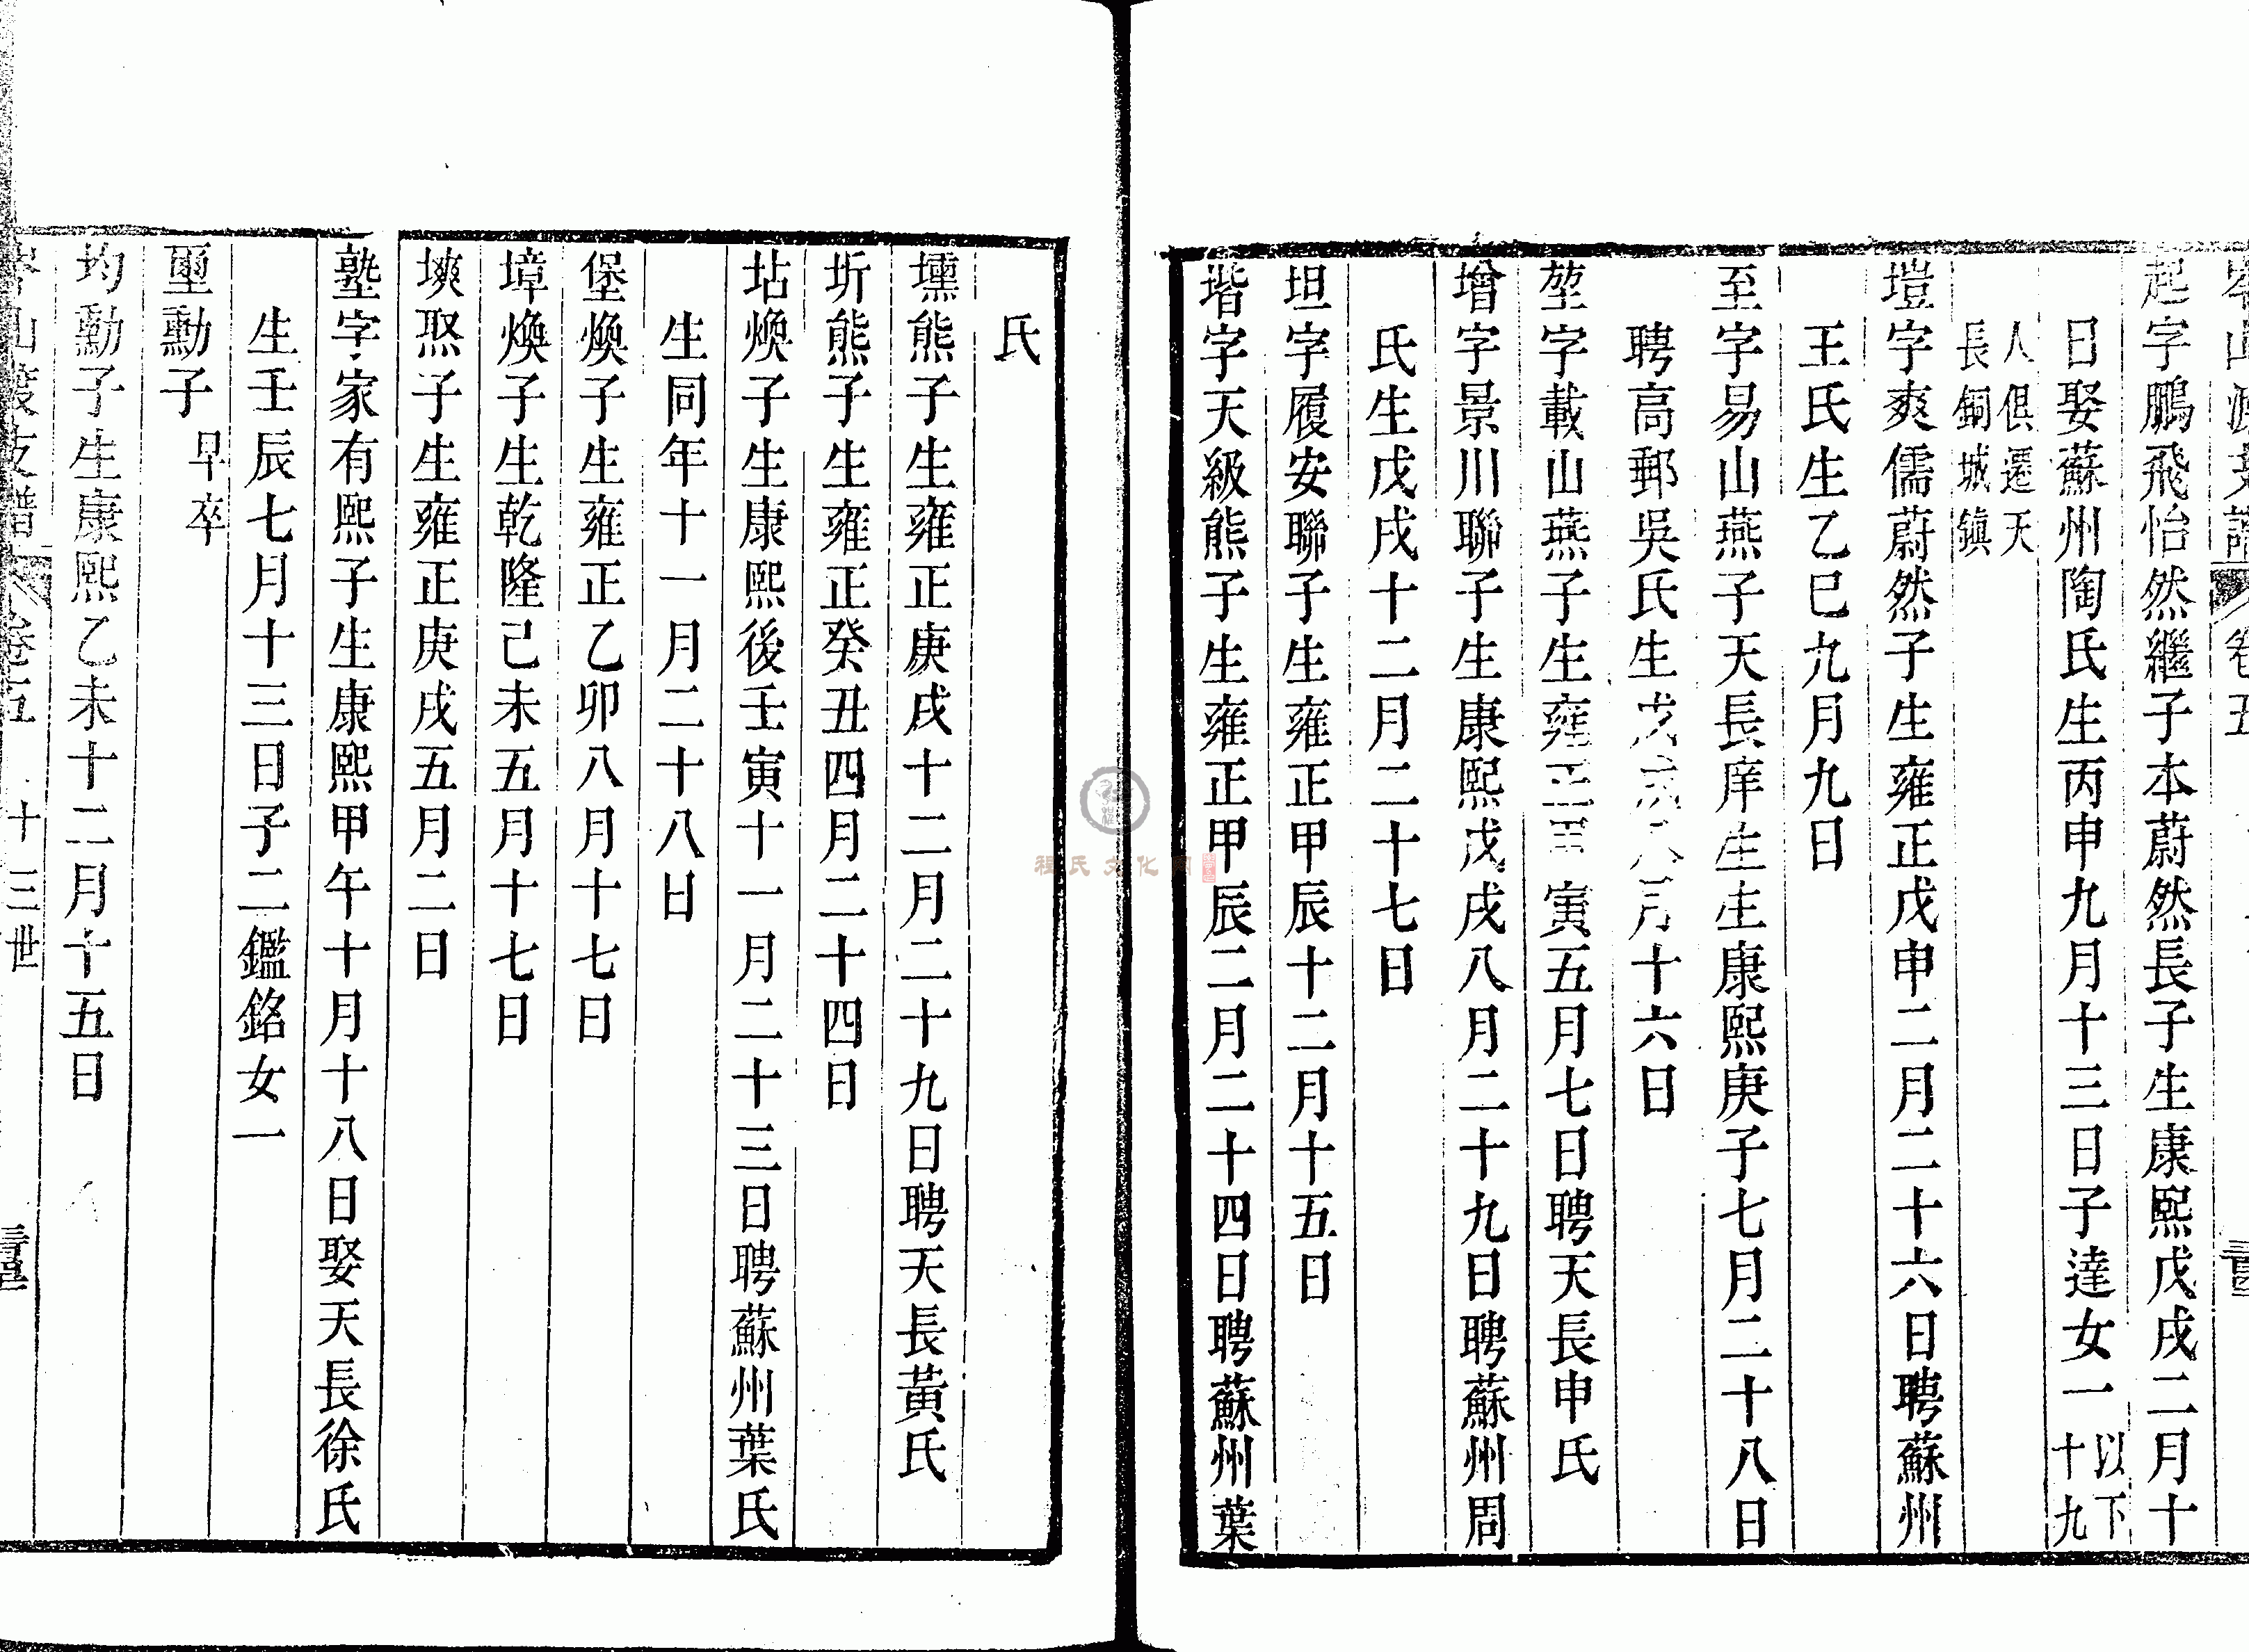 岑山渡支譜 卷五
起字鵬飛怡然繼子本蔚然長子生康熙戊戌二月十
日娶蘇州陶氏生丙申九月十三日子達女一以下十九
人俱遷天長銅城鎮
塏字爽儒蔚然子生雍正戊申二月二十六日聘蘇州
王氏生乙巳九月九日
至字易山燕子天長庠生生康熙庚子七月二十八日
聘高郵吳氏生戊戌八月十六日
堃字載山燕子生雍正甲寅五月七日聘天長申氏
增字景川聯子生康熙戊戌八月二十九日聘蘇州周
氏生戊戌十二月二十七日
坦字履安聯子生雍正甲辰十二月十五日
堦字天級熊子生雍正甲辰二月二十四日聘蘇州葉
氏
壎熊子生雍正庚戌十二月二十九日聘天長黃氏
圻熊子生雍正癸丑四月二十四日
坫煥子生康熙後壬寅十一月二十三日聘蘇州葉氏
生同年十一月二十八日
堡煥子生雍正乙卯八月十七日
墇煥子生乾隆己未五月十七日
塽炤子生雍正庚戌五月二日
塾字家有熙子生康熙甲午十月十八日娶天長徐氏
生壬辰七月十三日子二鑑銘女一
壐勳子早卒
均勳子生康熙乙未十二月十五日
岑山渡支譜 卷五 十三世